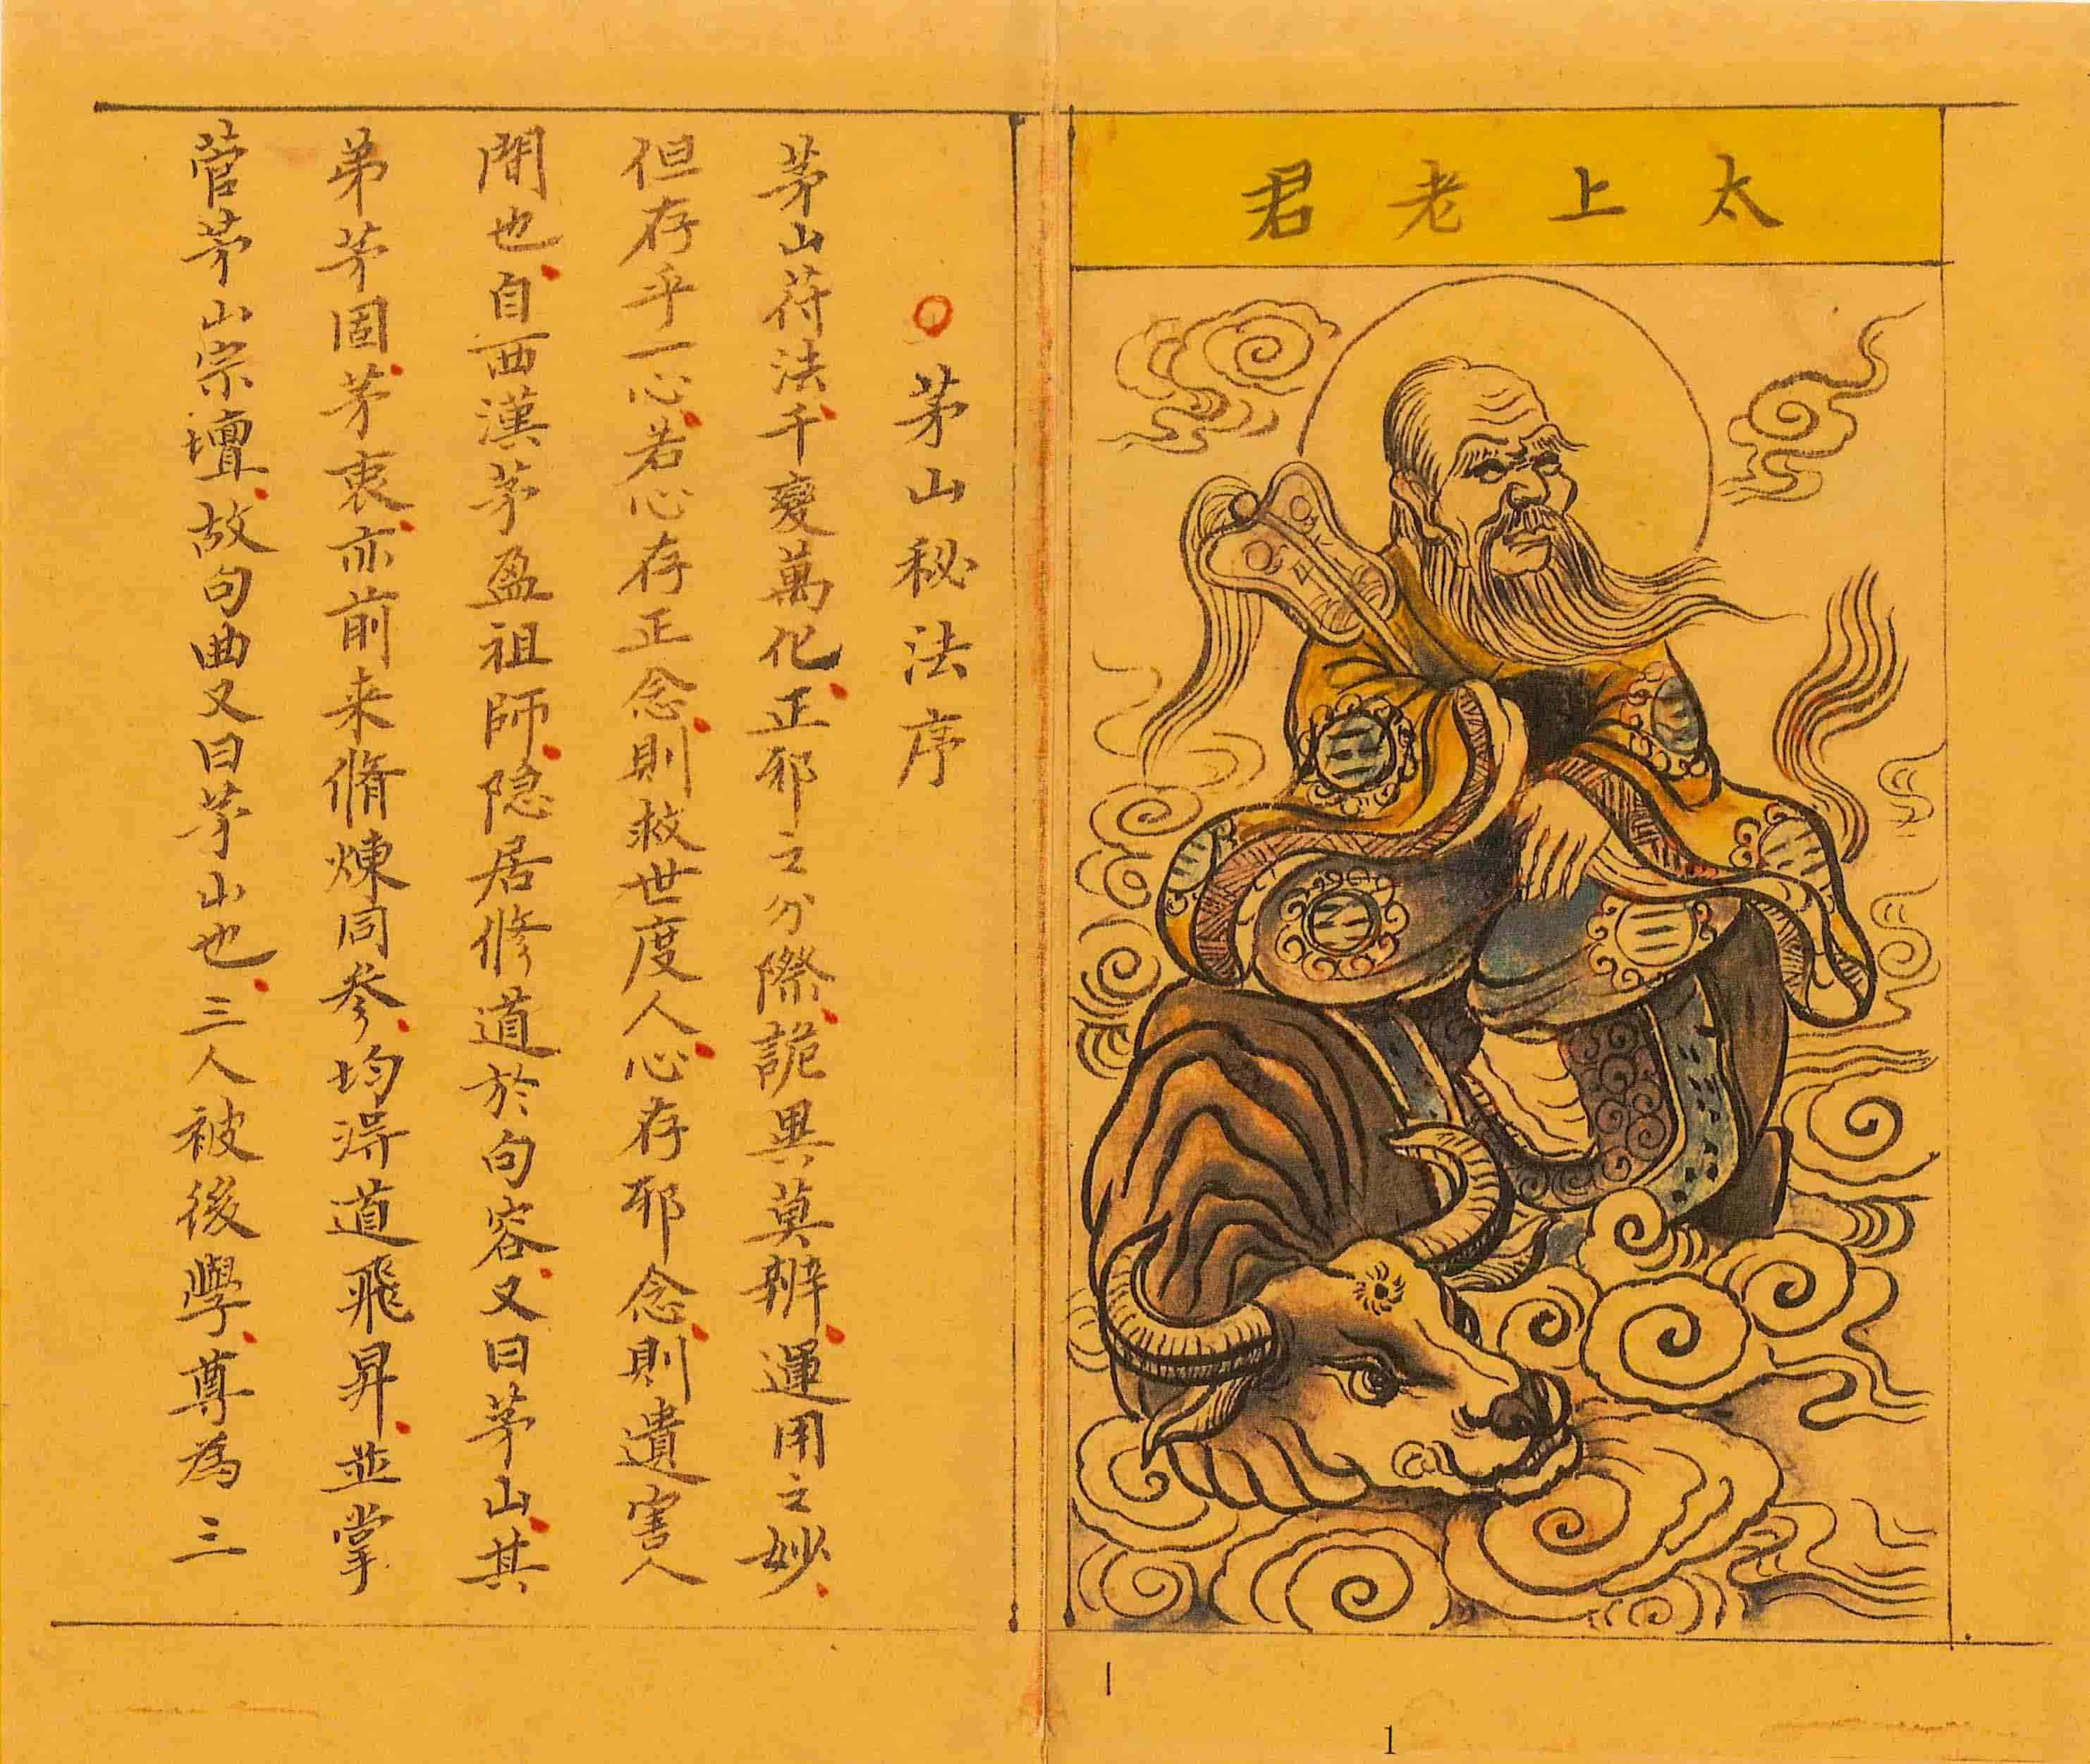 太上老君
茅山秘法序
茅山符法千變萬化正邪之分際詭異莫辨運用之妙
但存乎一心若心存正念則救世度人心存邪念則遺害人
間也自西漢茅盈祖師隐居修道於句容又曰茅山其
弟茅固茅衷亦前来脩煉同參均得道飛昇並掌
管茅山宗壇故句曲又曰茅山也三人被後學尊為三
1
1